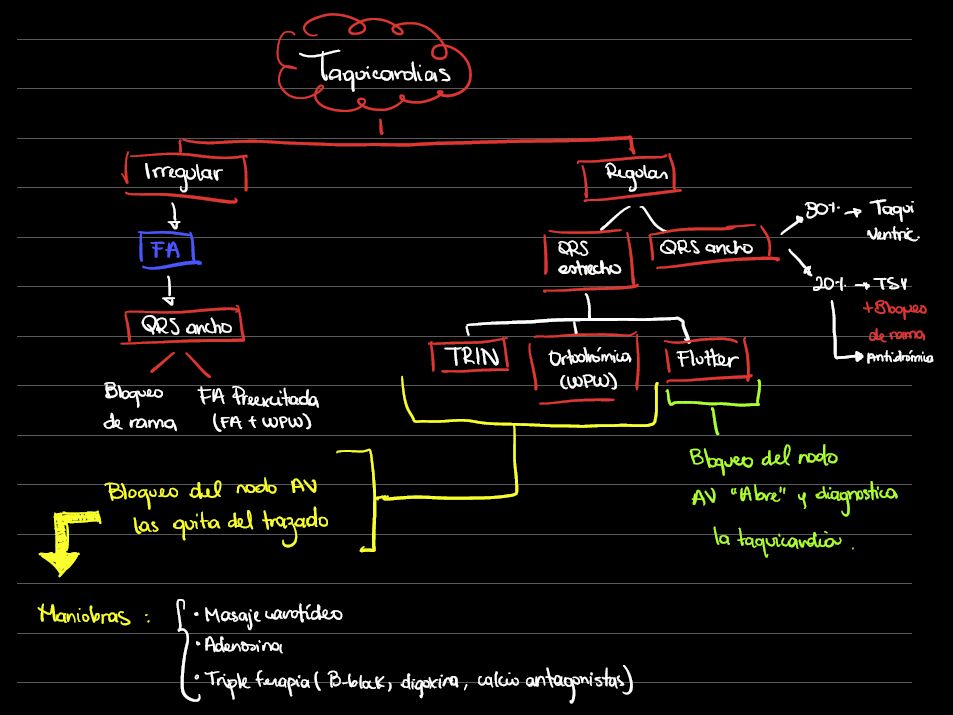 Taquicardias
Irregular
Regular
FA
QRS ancho
Bloqueo
de rama
FA Preexcitada
(FA + WPW)
QRS
estrecho
QRS ancho
80% → Taqui
ventric.
20% → TSV
+Bloqueo
de rama
Antidrómica
TRIN
Ortodrómica
(WPW)
Flutter
Bloqueo del nodo AV
las quita del trazado
Bloqueo del nodo
AV "Abre" y diagnostica
la taquicardia.
Maniobras :
• Masaje carotídeo
• Adenosina
• Triple terapia ( B-block, digoxina, calcio antagonistas)